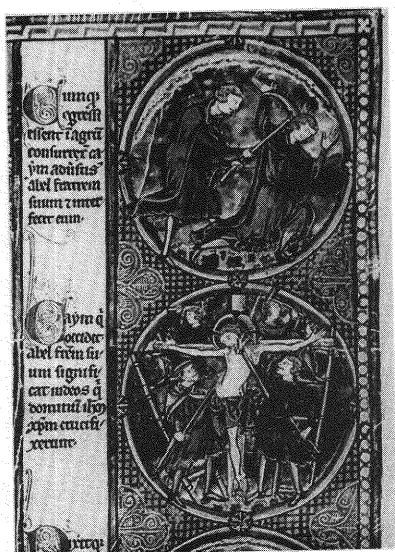 Cumq̨
egressi
essent ī agrū
consurrex̄ ca
ym adūsus
abel fratrem
suum ⁊ inter
fecit eum.
Caym q̄
occidit
abel frēm su
um signifi
cat iudeos q̄
dominū ihm̄
xp̄m crucifi
xerunt.
Dixitq̨